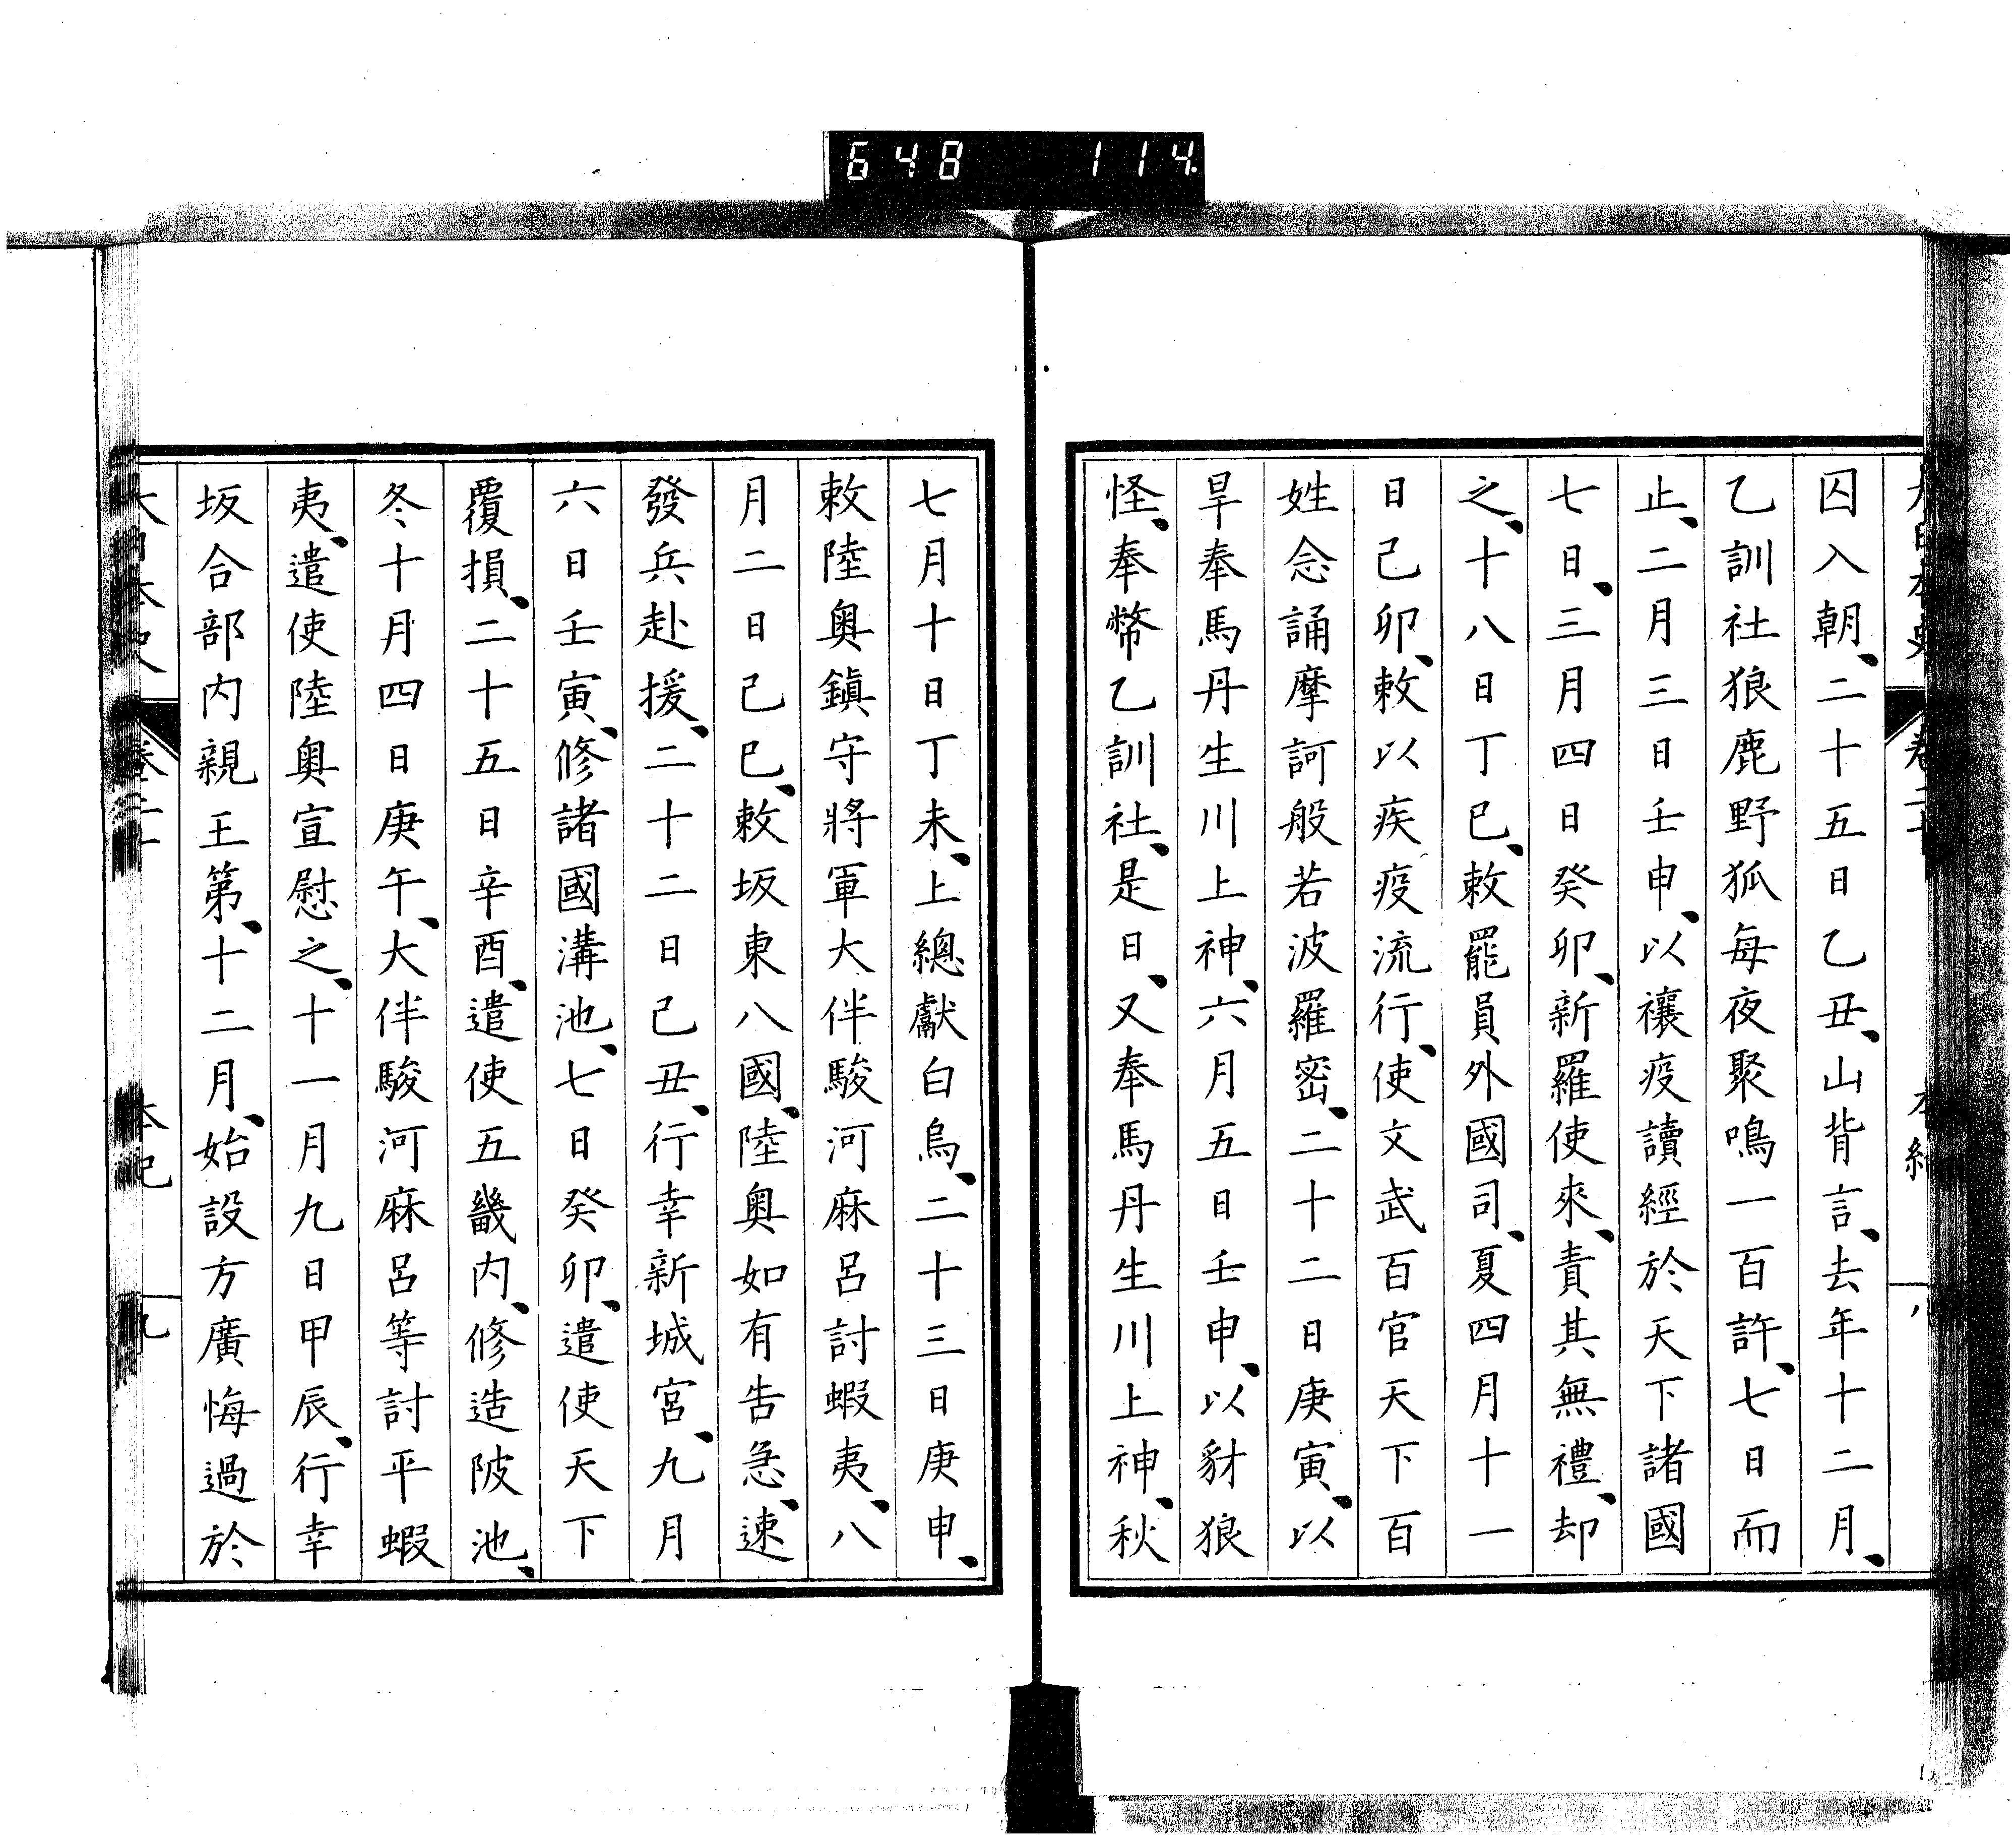 648 114
囚入朝、二十五日乙丑、山背言、去年十二月、
乙訓社狼鹿野狐每夜聚鳴一百許、七日而
止、二月三日壬申、以禳疫讀經於天下諸國
七日、三月四日癸卯、新羅使來、責其無禮、却
之、十八日丁巳、敕罷員外國司、夏四月十一
日己卯、敕以疾疫流行、使文武百官天下百
姓念誦摩訶般若波羅密、二十二日庚寅、以
旱奉馬丹生川上神、六月五日壬申、以豺狼
怪、奉幣乙訓社、是日、又奉馬丹生川上神、秋
七月十日丁未、上總獻白烏、二十三日庚申、
敕陸奧鎭守將軍大伴駿河麻呂討蝦夷、八
月二日己巳、敕坂東八國、陸奧如有告急、速
發兵赴援、二十二日己丑、行幸新城宮、九月
六日壬寅、修諸國溝池、七日癸卯、遣使天下
覆損、二十五日辛酉、遣使五畿内、修造陂池、
冬十月四日庚午、大伴駿河麻呂等討平蝦
夷、遣使陸奧宣慰之、十一月九日甲辰、行幸
坂合部内親王第、十二月、始設方廣悔過於
大日本史 本紀 九